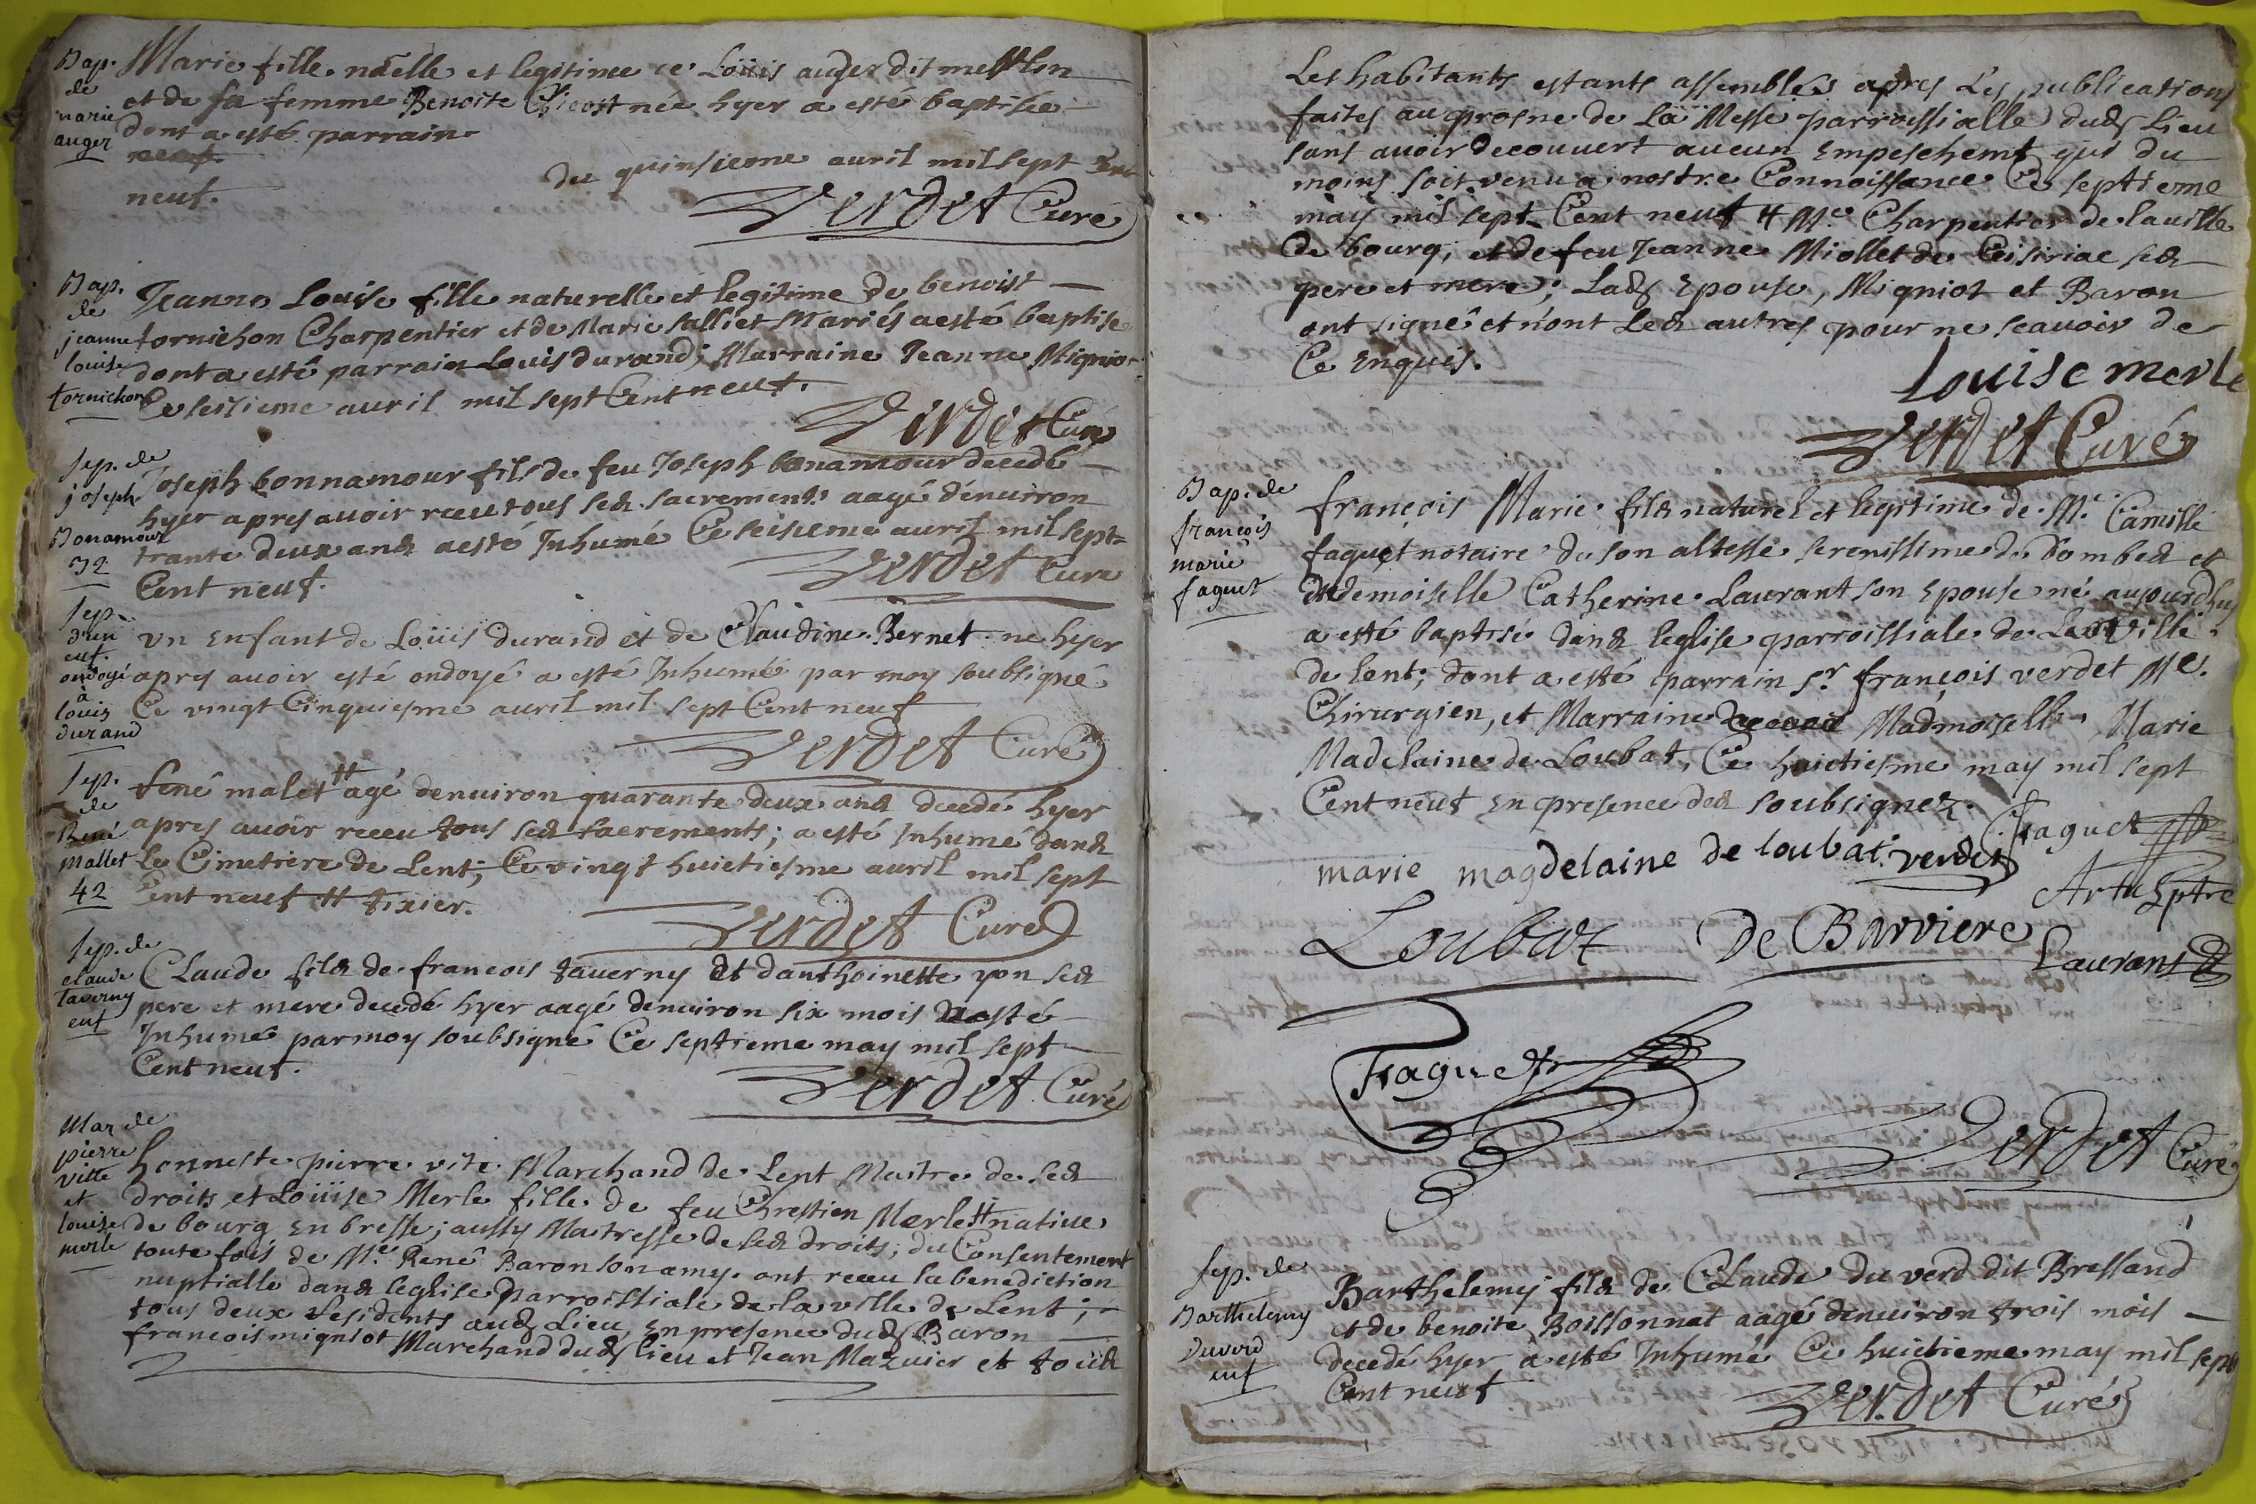 Bap.
de
marie
auger
Marie fille nãelle et legitime de Loüis auger dit
et de sa femme Benoite née hyer a esté baptisée
dont a esté parrain
du quinsieme auril mil sept Cent
neuf.
Verdet Curé
Bap.
de
jeanne
louise
tornichon
Jeanne Louise fille naturelle et legitime de benoist
tornichon Charpentier et de Marie salliet Mariés a esté baptise
dont a esté parrain Louis durand; Marraine Jeanne Migniot
Ce seisieme auril mil sept Cent neuf.
Verdet Curé
sep. de
joseph
Bonamour
32
Joseph bonnamour fils de feu Joseph bonamour decedé
hyer apres auoir receu tous ses sacrements aagé denuiron
trante deux ans a esté Inhumé Ce seisieme auril mil sept
Cent neuf.
Verdet Curé
sep.
d'un
enf.
ondoyé
à
louis
durand
vn Enfant de Loüis durand et de Claudine Bernet ne hyer
apres auoir esté ondoyé a esté Inhumé par moy soubsigné
Ce vingt Cinquiesme auril mil sept Cent neuf
Verdet Curé
sep.
de
René
mallet
42
René malet # agé denuiron quarante deux ans decedé hyer
apres auoir receu tous ses sacrements; a esté Inhumé dans
le Cimetiere de Lent; Ce vingt huictiesme auril mil sept
Cent neuf # tixier.
Verdet Curé
sep. de
claude
taverny
enf
CLaude fils de francois taverny et danthoinette yon ses
pere et mere decedé hyer aagé denuiron six mois a esté
Inhumé par moy soubsigné Ce septieme may mil sept
Cent neuf.
Verdet Curé
Mar de
pierre
vitte
et
louise
merle
honneste pierre vite Marchand de Lent Maitre de ses
droits et Loüise Merle fille de feu Chrestien Merle # natiue
de bourg en bresse; aussy Maitresse de ses droits; du Consentement
toute fois de Mr. René Baron son amy ont receu la benediction
nuptialle dans leglise parroissiale de la ville de Lent;
tous deux residents aud Lieu, en presence dud Baron
francois migniot Marchand dud lieu et Jean Mazuier et tous
Les habitants estants assemblés apres les publications
faites au prosne de La Messe parroissialle dud Lieu
sans auoir decouuert aucun Empeschemt qui du
moins soit venu a nostre Connoissance Ce septieme
may mil sept Cent neuf # Me. Charpentier de la ville
de bourg, et de feu Jeanne Miollet de Ceisiriac ses
pere et mere; Lad Epouse, Migniot et Baron
ont signé et n'ont Les autres pour ne scauoir de
Ce Enquis.
Louise merle
Verdet Curé
Bap. de
françois
marie
faguet
françois Marie fils naturel et legitime de Mr. Camille
faguet notaire de son altesse serenissime de Dombes et
demoiselle Catherine Laurant son Epouse né aujourdhuy
a esté baptisé dans leglise parroissiale de La ville
de lent; dont a esté parrain sr. françois verdet Me.
Chirurgien, et Marraine Madmoiselle Marie
Madelaine de Loubat, Ce huictiesme may mil sept
Cent neuf En presence des soubsignez.
Faguet
marie magdelaine de loubat. verdet
Loubat De Barviere
Laurans
Faguet
Verdet Curé
sep. de
Barthelemy
Duverd
enf
Barthelemy fils de CLaude du verd dit Bressand
et de benoite Boissonnat aagé denuiron trois mois
decedé hyer a esté Inhumé Ce huitieme may mil sept
Cent neuf
Verdet Curé